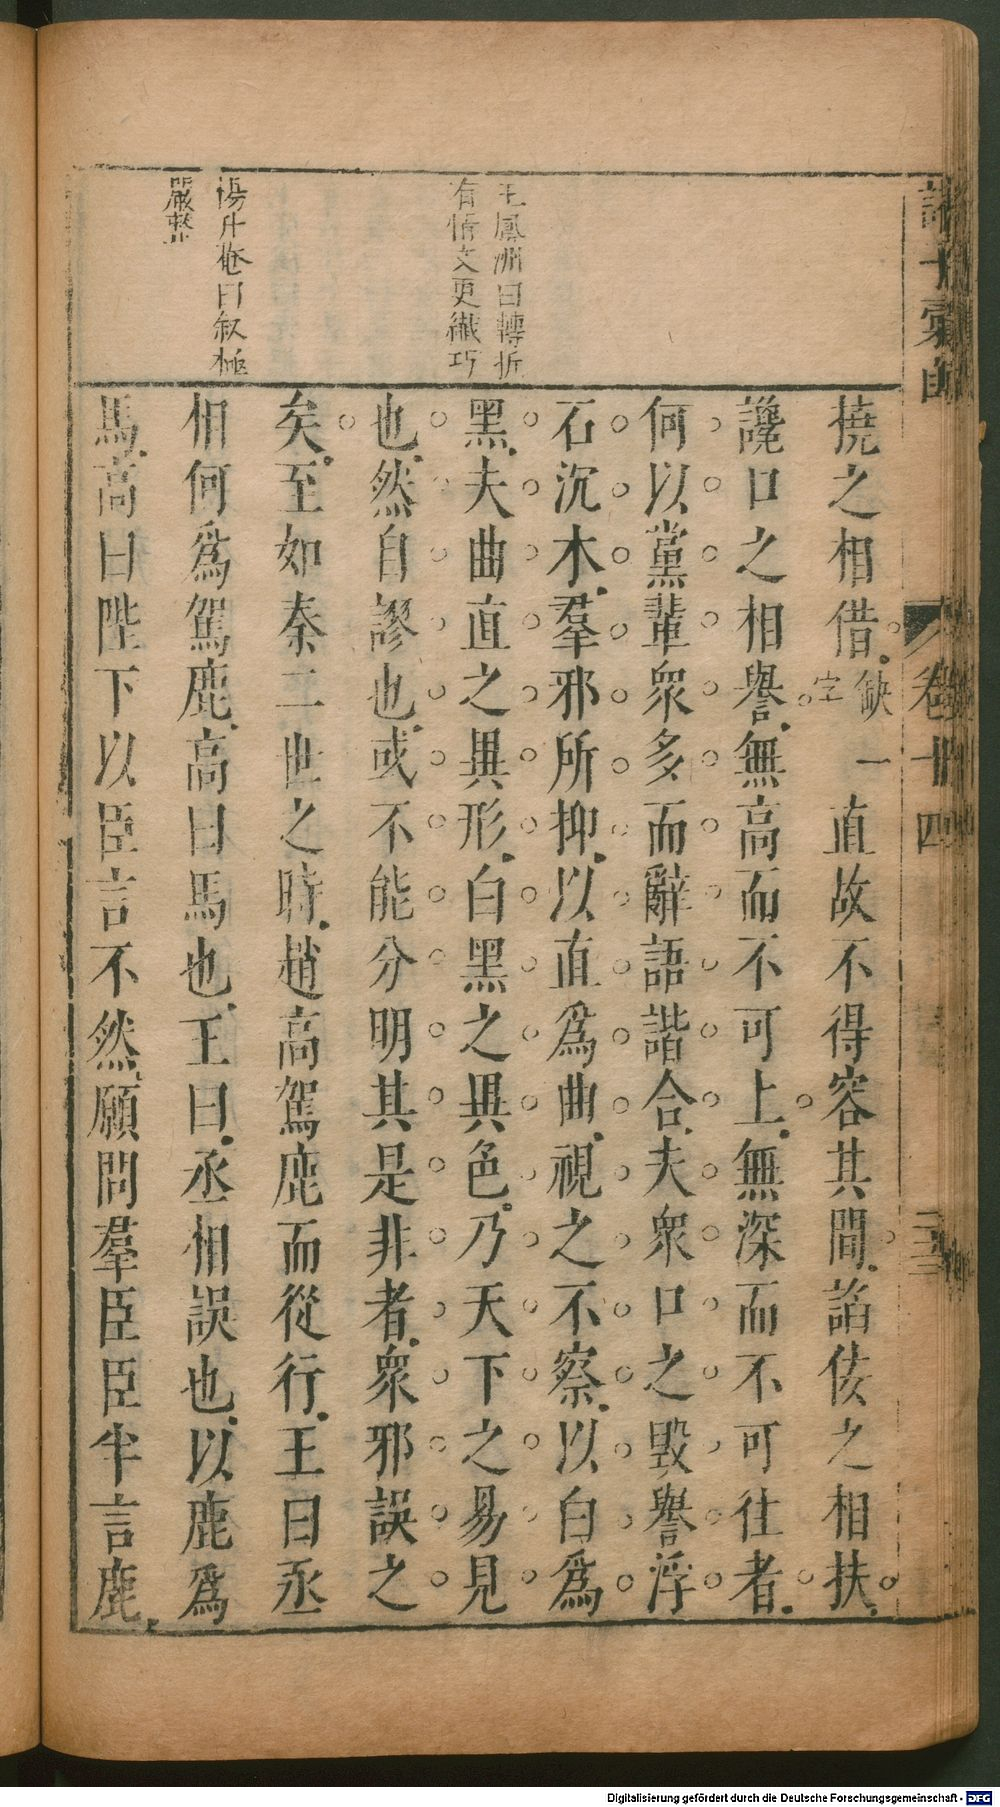 諸子彙函
卷十四
三三
撓之相借缺一字直故不得容其間諂佞之相扶
讒口之相譽無高而不可上無深而不可往者
何以黨輩衆多而辭語諧合夫衆口之毀譽浮
石沉木羣邪所抑以直爲曲視之不察以白爲
黑夫曲直之異形白黑之異色乃天下之易見
也然自謬也或不能分明其是非者衆邪誤之
矣至如秦二世之時趙高駕鹿而從行王曰丞
相何爲駕鹿高曰馬也王曰丞相誤也以鹿爲
馬高曰陛下以臣言不然願問羣臣臣半言鹿
王鳳洲曰轉折
有情文更纎巧
楊升菴曰叙極
嚴整
Digitalisierung gefördert durch die Deutsche Forschungsgemeinschaft - DFG